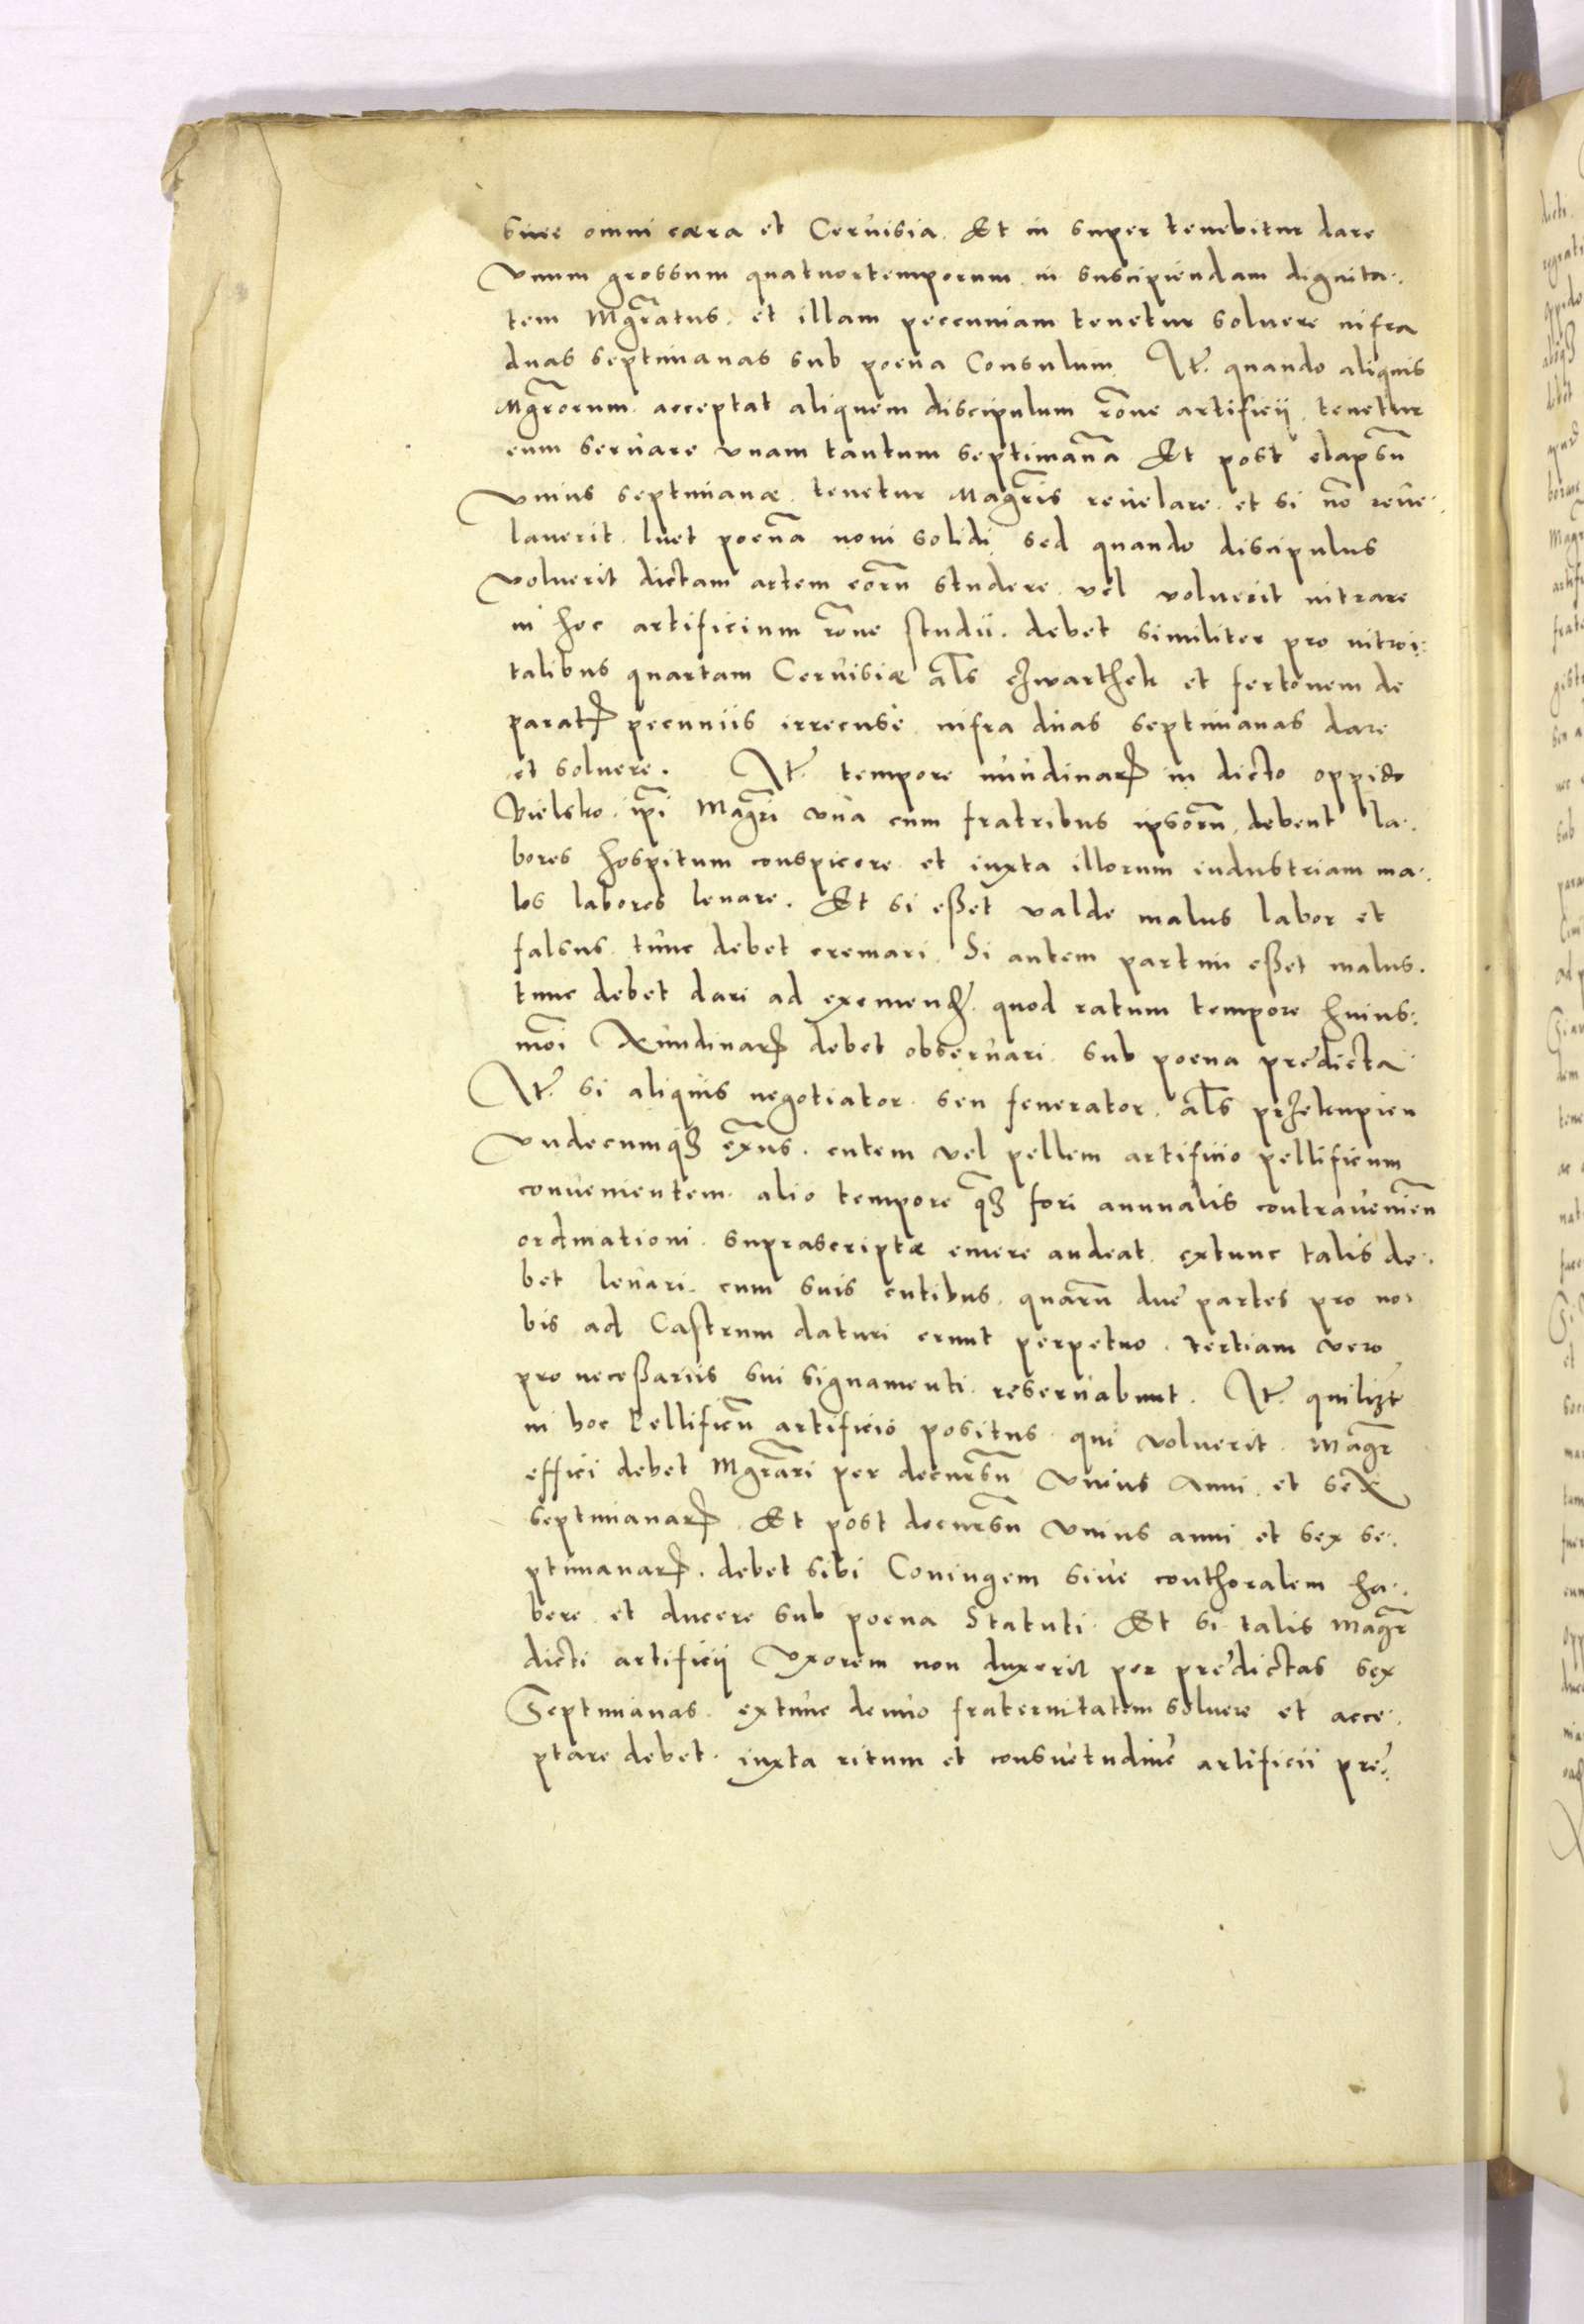 sine omni caera et Ceruisia. Et in super tenebitur dare
vnum grossum quatuortemporum in suscipiendam dignita-
tem Mgratus. et illam peccuniam tenetur soluere infra
duas septimanas sub poena Consulum. It. quando aliquis
Mgrorum acceptat aliquem discipulum rone artificij, tenetur
eum seruare vnam tantum septimanā Et post elapsū
vnius septimanæ tenetur Magris reuelare. et si nō reue-
lauerit. luet poenā noui solidi sed quando discipulus
voluerit dictam artem eorū studere. vel voluerit intrare
in hoc artificium rone studii. debet similiter pro introi-
talibus quartam Ceruisiæ als czwarthek et fertonem de
paratꝝ pecuniis irrecuse infra duas septimanas dare
et soluere. It. tempore nundinarꝝ in dicto oppido
Bielsko. ipi Magri vna cum fratribus ipsorū, debent la-
bores hospitum conspicere et iuxta illorum industriam ma-
los labores leuare. Et si eßet valde malus labor et
falsus tunc debet cremari. Si autem partim eßet malus.
tunc debet dari ad exemendꝝ. quod ratum tempore huius-
moi Nundinarꝝ debet obseruari sub poena predicta
It. si aliquis negotiator seu fenerator. als przekupien
vndecumqȝ exns. cutem vel pellem artificio pellificum
conuenientem. alio tempore qȝ fori annualis contrauenien
ordinationi suprascriptæ emere audeat. extunc talis de-
bet leuari. cum suis cutibus. quarū due partes pro no-
bis ad Castrum daturi erunt perpetuo. tertiam vero
pro neceßariis sui signamenti reseruabunt. It. quilibet
in hoc Pellificū artificio positus qui voluerit. Magr
effici debet Mgrari per decursū vnius Anni et sex
septimanarꝝ. Et post decursū vnius anni et sex se-
ptimanarꝝ. debet sibi Coniugem siue conthoralem ha-
bere et ducere sub poena Statuti. Et si talis Magr
dicti artificij Vxorem non duxerit per predictas sex
Septimanas. extunc denuo fraternitatem soluere et acce-
ptare debet. iuxta ritum et consuetudinē artificii pre-